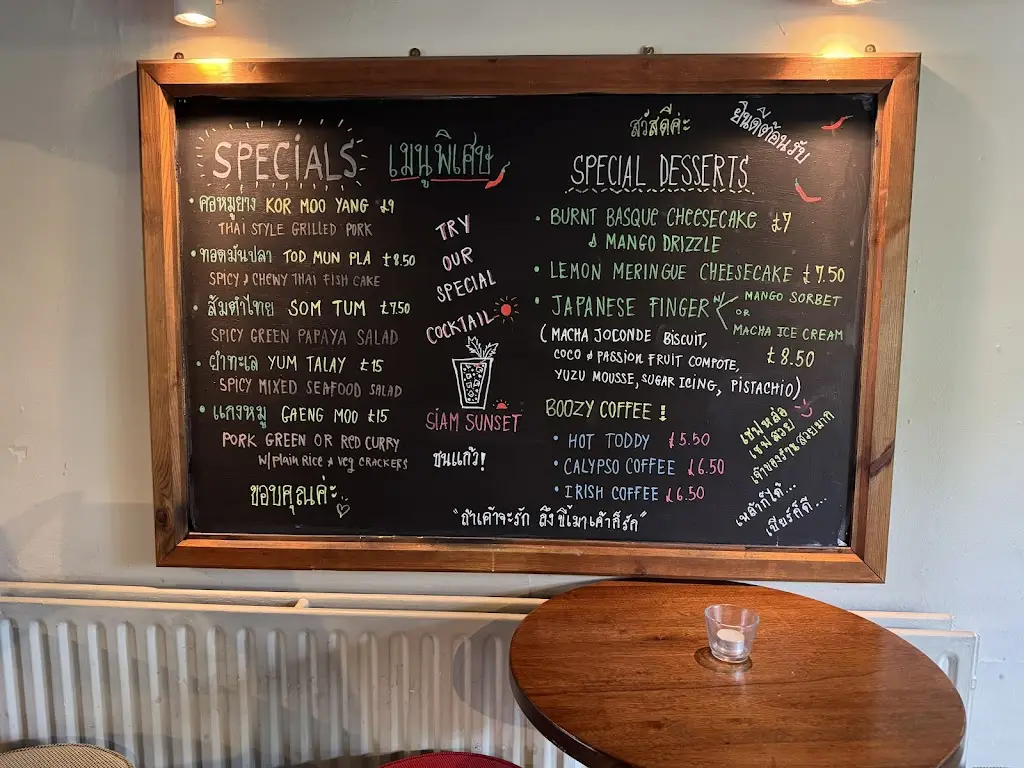 SPECIALS เมนูพิเศษ
• คอหมูย่าง KOR MOO YANG £9
THAI STYLE GRILLED PORK
• ทอดมันปลา TOD MUN PLA £8.50
SPICY & CHEWY THAI FISH CAKE
• ส้มตำไทย SOM TUM £7.50
SPICY GREEN PAPAYA SALAD
• ยำทะเล YUM TALAY £15
SPICY MIXED SEAFOOD SALAD
• แกงหมู GAENG MOO £15
PORK GREEN OR RED CURRY
W/ PLAIN RICE & VEG CRACKERS
ขอบคุณค่ะ
TRY
OUR
SPECIAL
COCKTAIL
SIAM SUNSET
ชนแก้ว!
สวัสดีค่ะ
ยินดีต้อนรับ
SPECIAL DESSERTS
• BURNT BASQUE CHEESECAKE £7
& MANGO DRIZZLE
• LEMON MERINGUE CHEESECAKE £7.50
• JAPANESE FINGER W/ MANGO SORBET
OR
MACHA ICE CREAM
(MACHA JOCONDE BISCUIT,
COCO & PASSION FRUIT COMPOTE, £8.50
YUZU MOUSSE, SUGAR ICING, PISTACHIO)
BOOZY COFFEE !
• HOT TODDY £5.50
• CALYPSO COFFEE £6.50
• IRISH COFFEE £6.50
เชฟหล่อ
เชฟสวย
เจ้าของร้านสวยมาก
เหล้าก็ได้...
เบียร์ก็ดี...
"ถ้าเค้าจะรัก ถึงขี้เมาเค้าก็รัก"